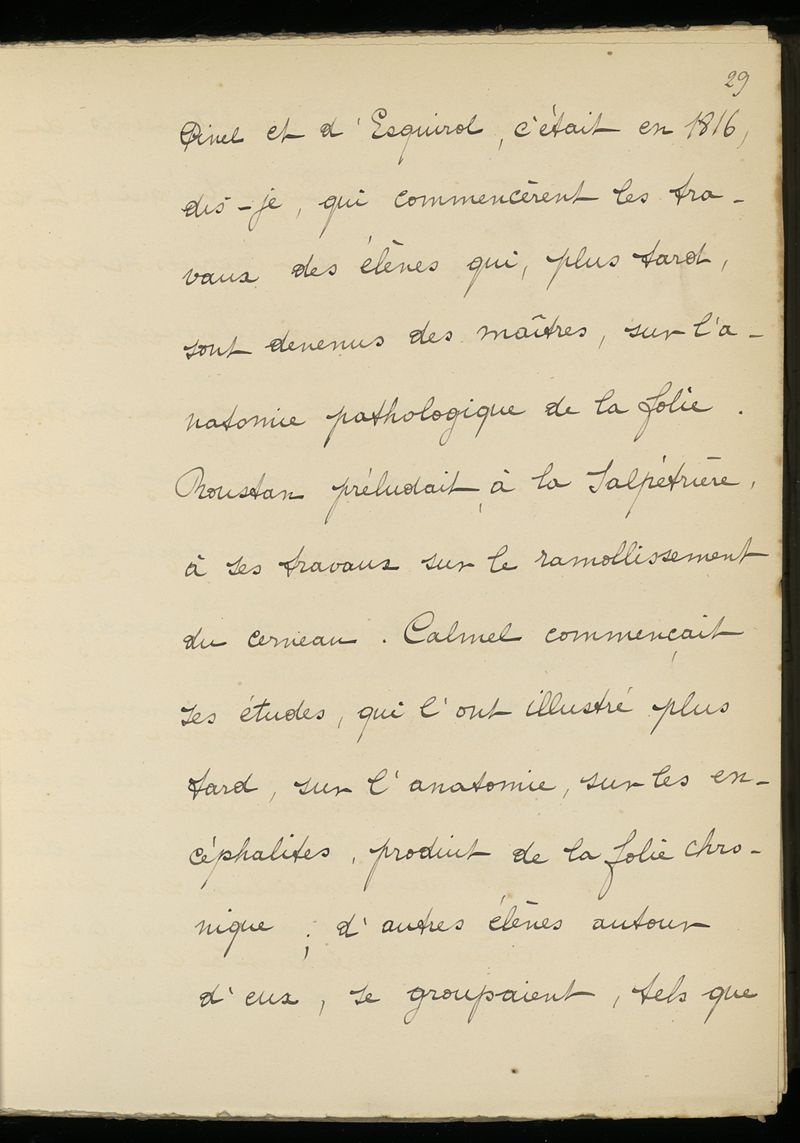 29
Pinel et d'Esquirol, c'était en 1816,
dis-je, qui commencèrent les tra-
vaux des élèves qui, plus tard,
sont devenus des maîtres, sur l'a-
natomie pathologique de la folie.
Roustan préludait, à la Salpétrière,
à ses travaux sur le ramollissement
du cerveau. Calmel commençait
ses études, qui l'ont illustré plus
tard, sur l'anatomie, sur les en-
céphalites, produit de la folie chro-
nique; d'autres élèves autour
d'eux, se groupaient, tels que